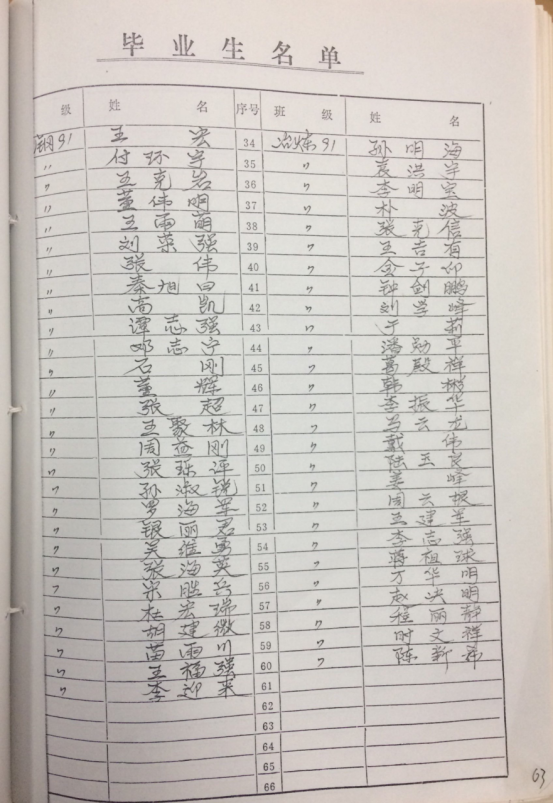 毕业生名单
级 姓 名 序号 班 级 姓 名
91 王 宏 34 岩炼91 孙明海
〃 付环宇 35 〃 袁洪宇
〃 王克岩 36 〃 李明宝
〃 董伟明 37 〃 朴 波
〃 王雨萌 38 〃 张克信
〃 刘荣强 39 〃 王吉有
〃 张 伟 40 〃 金子
〃 秦旭 41 〃 钟剑鹏
〃 高 凯 42 〃 刘学峰
〃 谭志强 43 〃 于 莉
〃 邓志宁 44 〃 潘勋平
〃 石 刚 45 〃 葛殿祥
〃 董 辉 46 〃 韩 彬
〃 张 超 47 〃 李振华
〃 王聚林 48 〃 云龙
〃 周 刚 49 〃 戴 伟
〃 张 50 〃 陆玉良
〃 孙淑锐 51 〃 姜 峰
〃 罗海军 52 〃 周云根
〃 银丽君 53 〃 王建军
〃 吴维勇 54 〃 李志强
〃 张海英 55 〃 蒋祖球
〃 宋胜兵 56 〃 万华明
〃 杜宏瑞 57 〃 赵洪明
〃 胡建微 58 〃 程丽静
〃 苗雨川 59 〃 时文祥
〃 王福强 60 〃 陈新
〃 李迎来 61
62
63
64
65
66
63